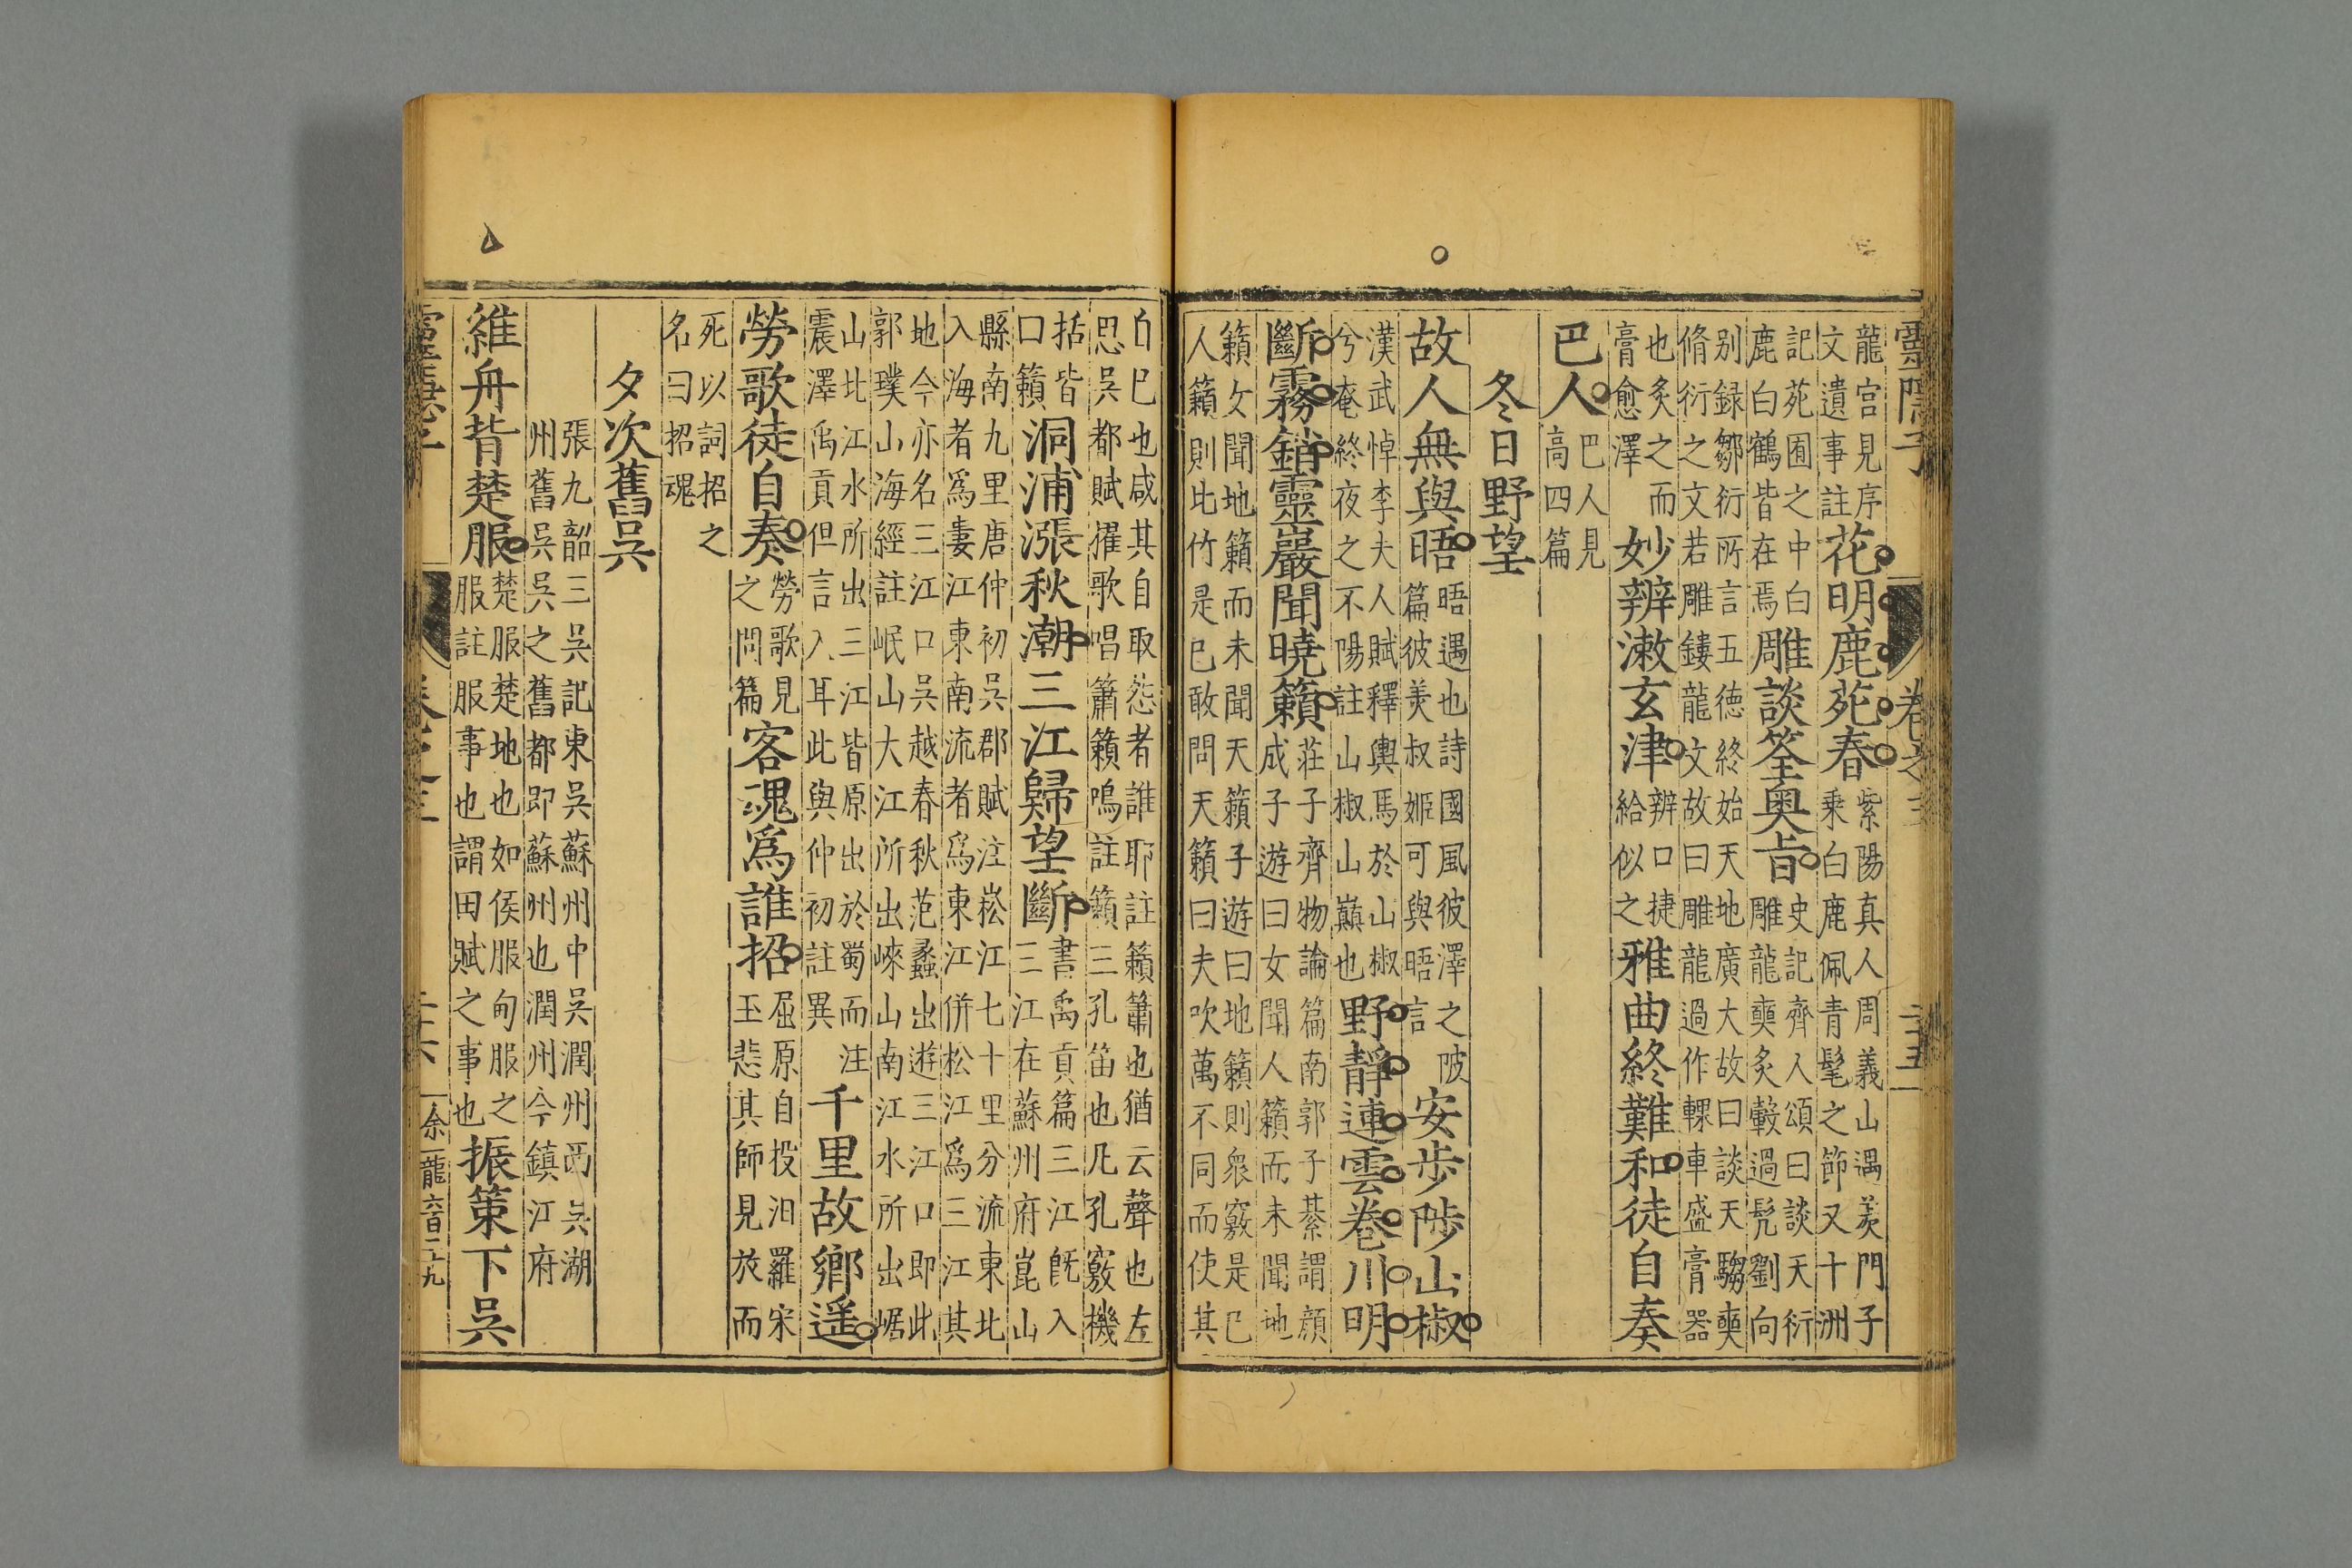 靈隱子 卷之三 二五
龍宮見序
文遺事註
花明鹿苑春
紫陽真人周義山遇羨門子
乗白鹿佩青髦之節又十洲
記苑囿之中白
鹿白鶴皆在焉
雕談筌奥旨
史記齊人頌曰談天衍
雕龍奭炙轂過髠劉向
别録鄒衍所言五徳終始天地廣大故曰談天騶奭
脩衍之文若雕鏤龍文故曰雕龍過作輠車盛膏器
也炙之而
膏愈澤
妙辨漱玄津
辨口捷
給似之
雅曲終難和徒自奏
巴人
巴人見
高四篇
冬日野望
故人無與晤
晤遇也詩國風彼澤之陂
篇彼美叔姬可與晤言
安步陟山椒
漢武悼李夫人賦釋輿馬於山椒
兮奄終夜之不陽註山椒山巔也
野靜連雲卷川明
斷霧銷靈巖聞曉籟
莊子齊物論篇南郭子綦謂顔
成子遊曰女聞人籟而未聞地
籟女聞地籟而未聞天籟子遊曰地籟則衆竅是已
人籟則比竹是已敢問天籟曰夫吹萬不同而使其
自已也咸其自取怨者誰耶註籟簫也猶云聲也左
思吳都賦擢歌唱簫籟鳴註籟三孔笛也凡孔竅機
括皆
口籟
洞浦漲秋潮三江歸望斷
書禹貢篇三江旣入
三江在蘇州府崑山
縣南九里唐仲初吳郡賦注崧江七十里分流東北
入海者爲婁江東南流者爲東江併松江爲三江其
地今亦名三江口吳越春秋范蠡出遊三江口即此
郭璞山海經註岷山大江所出崍山南江水所出崌
山北江水所出三江皆原出於蜀而注
震澤禹貢但言入耳此與仲初註異
千里故鄉遥
勞歌徒自奏
勞歌見
之問篇
客魂爲誰招
屈原自投汨羅宋
玉悲其師見放而
死以詞招之
名曰招魂
夕次舊吳
張九韶三吳記東吳蘇州中吳潤州西吳湖
州舊吳吳之舊都即蘇州也潤州今鎮江府
維舟背楚服
楚服楚地也如侯服甸服之
服註服事也謂田賦之事也
振策下吳
靈隱子 卷之三 二六 余一龍 六百二十九